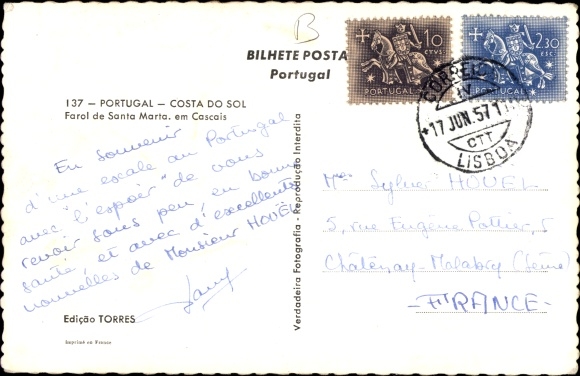 B
BILHETE POSTA
Portugal
137 — PORTUGAL — COSTA DO SOL
Farol de Santa Marta. em Cascais
10
CTVS
PORTUGAL
2.30
ESC.
PORTUGAL
CORREIO
17 JUN. 57 11
CTT
LISBOA
En souvenir
d'une escale au Portugal
avec "l'espoir" de vous
revoir sans peu, en bonne
santé, et avec d'excellentes
nouvelles de Monsieur HOUËL
Verdadeira Fotografia - Reprodução Interdita
Mme Sylver HOUEL
5, rue Eugène Pottier, 5
Châtenay-Malabry (Seine)
-FRANCE-
Edição TORRES
Imprimé en France